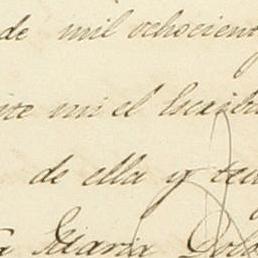 de mil ochocient
mi el Escriba
de ella y
Maria